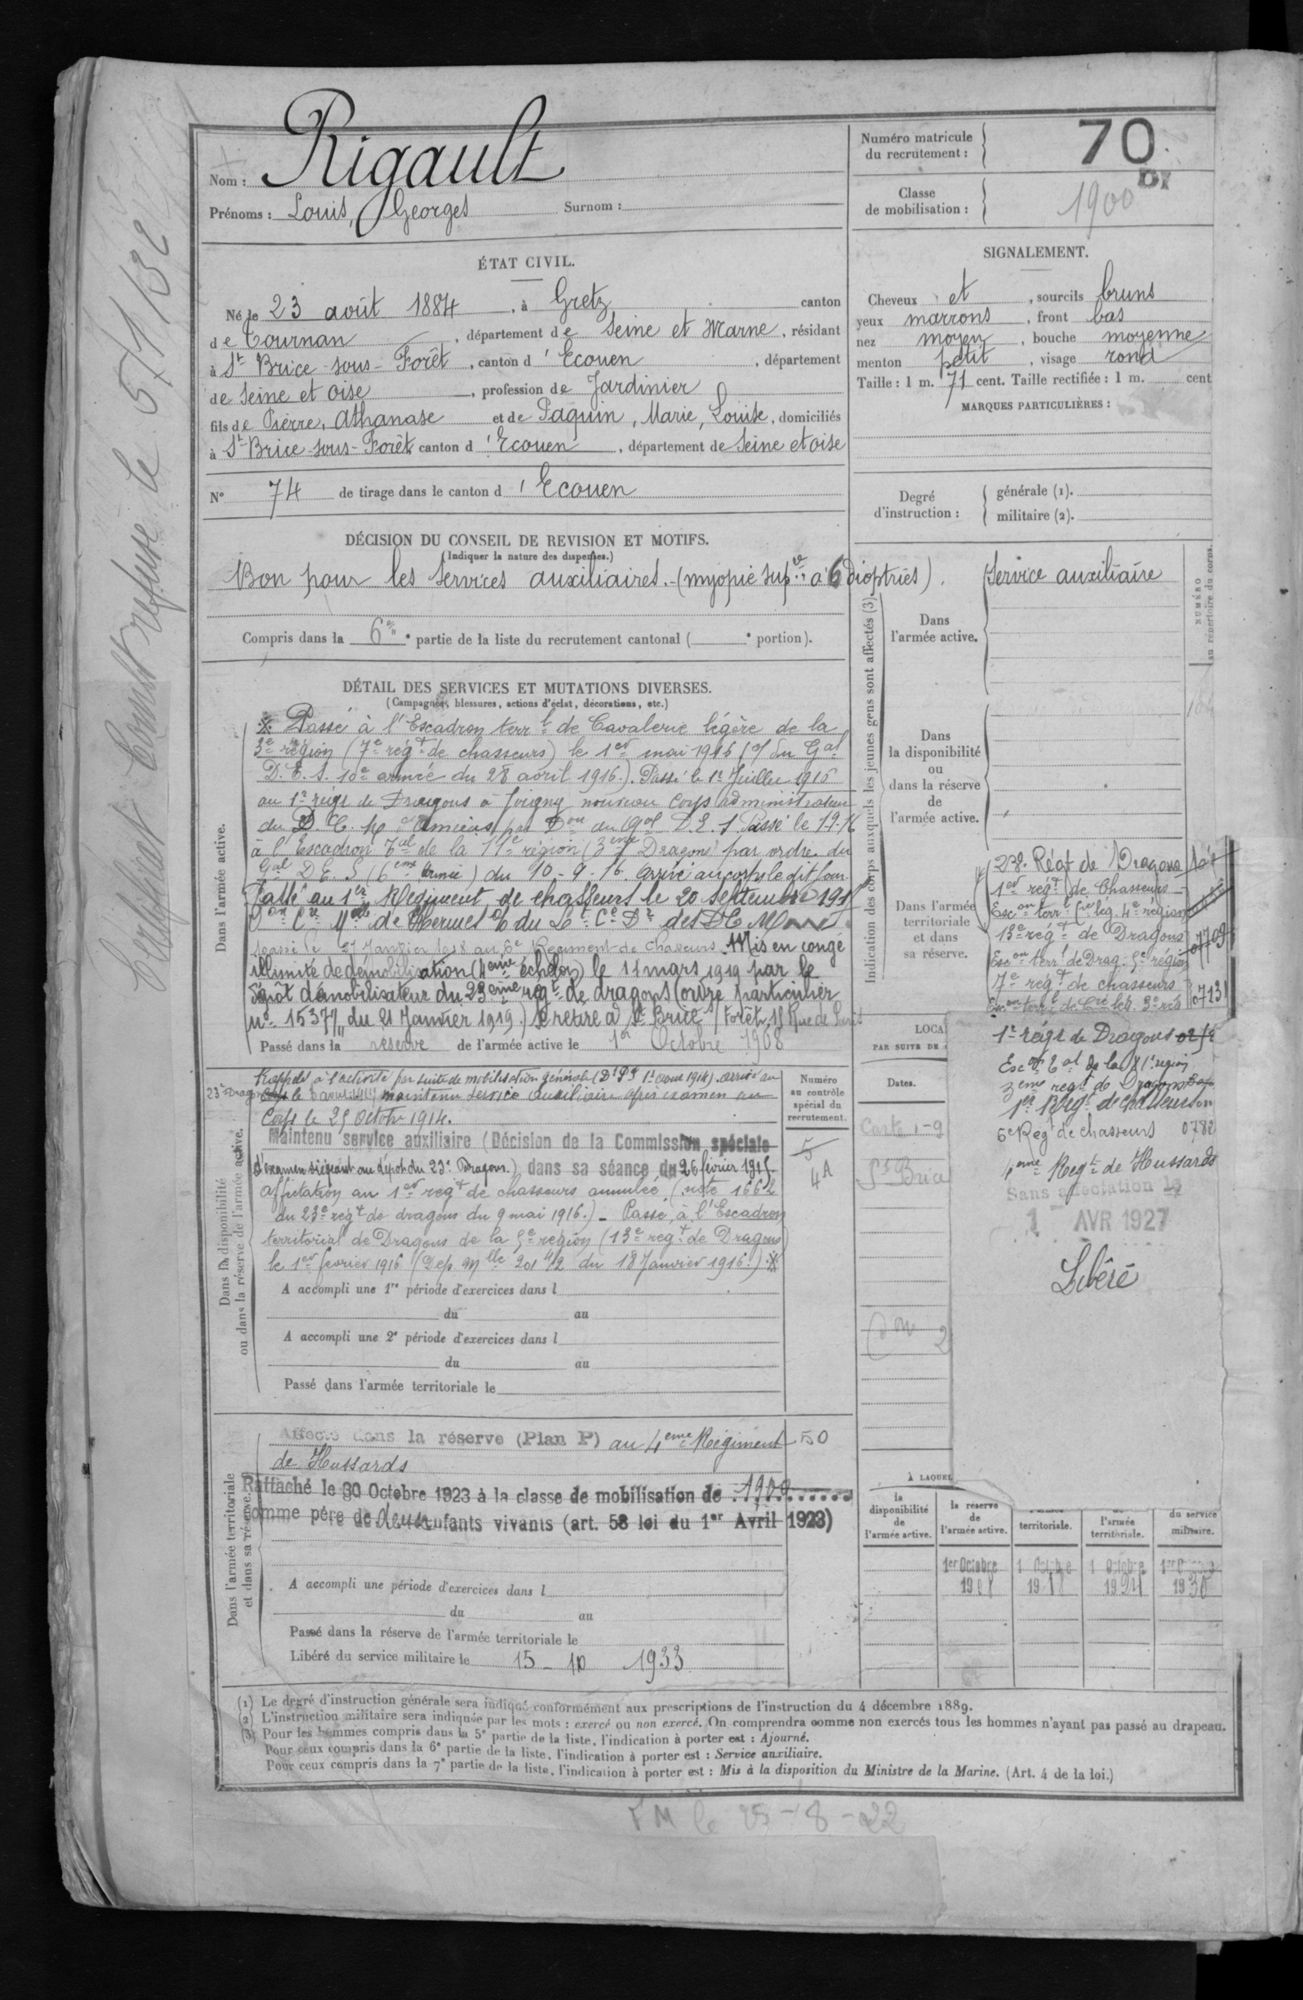 Certificat Combatt refusé le 5/1/32
Nom : Rigault
Prénoms : Louis, Georges Surnom :
Numéro matricule
du recrutement : 70
Classe
de mobilisation : 1900
ÉTAT CIVIL.
Né le 23 août 1884, à Gretz canton
de Tournan, département de Seine et Marne, résidant
à St Brice-sous-Forêt, canton d'Ecouen, département
de Seine et Oise, profession de Jardinier
fils de Pierre, Athanase et de Paquin, Marie, Louise, domiciliés
à St Brice-sous-Forêt canton d'Ecouen, département de Seine et oise
N° 74 de tirage dans le canton d'Ecouen
SIGNALEMENT.
Cheveux et, sourcils bruns
yeux marrons, front bas
nez moyen, bouche moyenne
menton petit, visage rond
Taille : 1 m. 71 cent. Taille rectifiée : 1 m. cent
MARQUES PARTICULIÈRES :
Degré
d'instruction :
générale (1).
militaire (2).
DÉCISION DU CONSEIL DE REVISION ET MOTIFS.
(Indiquer la nature des dispenses.)
Bon pour les services auxiliaires. (myopie supre à 6 dioptries).
Compris dans la 6e partie de la liste du recrutement cantonal ( e portion).
DÉTAIL DES SERVICES ET MUTATIONS DIVERSES.
(Campagnes, blessures, actions d'éclat, décorations, etc.)
Dans l'armée active.
※ Passé à l'Escadron terr l de Cavalerie légère de la
3e région (7e régt de chasseurs) le 1er mai 1916 ( du Gal
D.E.S. 10e armée du 28 avril 1916.). Passé le 1er Juillet 1916
au 1er régt de Dragons à Joigny nouveau corps administrateur
du Amiens par Don du Gal D.E.S. Passé le 19
à l'Escadron Tal de la 11e région (3eme Dragons) par ordre du
Gal D.E.S (6eme Armée) du 10-9-16. arrivé au corps le dit jour
Passé au 1er Régiment de chasseurs le 20 septembre
passé le 27 Janvier 1918 au Régiment de Chasseurs. Mis en congé
illimité de démobilisation (4eme échelon) le 11 mars 1919 par le
dépôt démobilisateur du 23eme régt de dragons (ordre particulier
no 15377 du 21 Janvier 1919.) Se retire à St Brice s/ Forêt, Rue de Paris
Passé dans la réserve de l'armée active le 1er Octobre 1908
Indication des corps auxquels les jeunes gens sont affectés (3).
NUMÉRO
au répertoire du corps.
Dans
l'armée active.
Service auxiliaire
Dans
la disponibilité
ou
dans la réserve
de
l'armée active.
Dans l'armée
territoriale
et dans
sa réserve.
23e Régt de Dragons
1er regt de Chasseurs
Escon terr l Cie lég. 4e région
13e regt de Dragons
Escon terr l de Drag. 5e région
7e regt de chasseurs
0713
1er régt de Dragons
Escon Tal de la 11e région
3eme regt de Dragons
1er Régt de Chasseurs
6e Régt de chasseurs 0782
4eme Régt de Hussards
Sans affectation le
1 AVR 1927
Libéré
Dans la disponibilité
ou dans la réserve de l'armée active.
Rappelé à l'activité par suite de mobilisation générale (Dt Pt 1er aout 1914). arrivé au
23e Dragons le maintenu service auxiliaire après examen au
Corps le 25 Octobre 1914.
Maintenu service auxiliaire (Décision de la Commission spéciale
d'examen siégeant au dépôt du 23e Dragons.) dans sa séance du 26 février 1915.
affectation au 1er regt de chasseurs annulée. (note 1662
du 23e régt de dragons du 9 mai 1916.) - Passé à l'Escadron
territorial de Dragons de la 5e région (13e regt de Dragons)
le 1er février 1916 (Dep. Mlle 201 4/2 du 18 Janvier 1916.) ※
A accompli une 1re période d'exercices dans l
du au
A accompli une 2e période d'exercices dans l
du au
Passé dans l'armée territoriale le
Numéro
au contrôle
spécial du
recrutement.
5
4A
LOCA
PAR SUITE DE
Dates.
St Brice
Dans l'armée territoriale
et dans sa réserve.
Affecté dans la réserve (Plan P) au 4eme Régiment
de Hussards
50
Rattaché le 30 Octobre 1923 à la classe de mobilisation de 1900
comme père de deux enfants vivants (art. 58 loi du 1er Avril 1923)
A accompli une période d'exercices dans l
du au
Passé dans la réserve de l'armée territoriale le
Libéré du service militaire le 15-10 1933
À LAQUEL
la
disponibilité
de
l'armée active.
la réserve
de
l'armée active.
territoriale.
l'armée
territoriale.
du service
militaire.
1er Octobre
1908
1 Octobre
1918
1 Octobre
1924
1930
(1) Le degré d'instruction générale sera indiqué conformément aux prescriptions de l'instruction du 4 décembre 1889.
(2) L'instruction militaire sera indiquée par les mots : exercé ou non exercé. On comprendra comme non exercés tous les hommes n'ayant pas passé au drapeau.
(3) Pour les hommes compris dans la 5e partie de la liste, l'indication à porter est : Ajourné.
Pour ceux compris dans la 6e partie de la liste, l'indication à porter est : Service auxiliaire.
Pour ceux compris dans la 7e partie de la liste, l'indication à porter est : Mis à la disposition du Ministre de la Marine. (Art. 4 de la loi.)
FM le 25-8-22